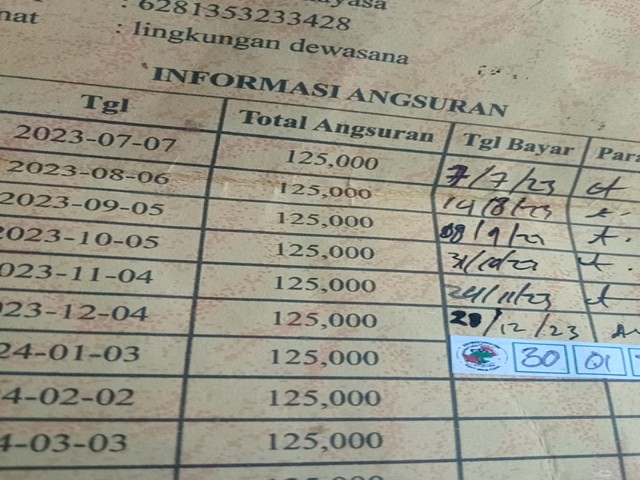 : 6281353233428
: lingkungan dewasana
INFORMASI ANGSURAN
Tgl Total Angsuran Tgl Bayar Para
2023-07-07 125,000 7/7/23
2023-08-06 125,000 14/8/23
2023-09-05 125,000 08/9/23
2023-10-05 125,000 31/10/23
023-11-04 125,000 24/11/23
23-12-04 125,000 28/12/23
24-01-03 125,000 30 01
4-02-02 125,000
4-03-03 125,000